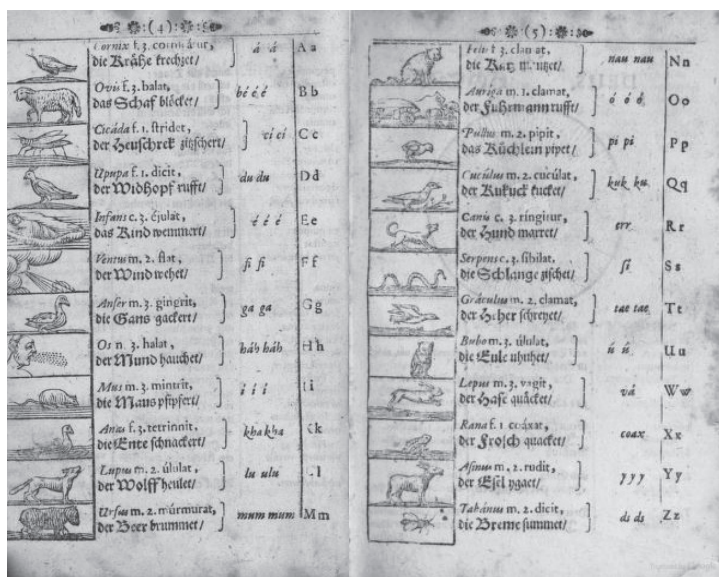 (4)
Cornix f. 3. cornicatur,
die Krähe krechzet/
á á
A a
Ovis f. 3. balat,
das Schaf blöcket/
bé é é
B b
Cicáda f. 1. stridet,
der Heuschreck zitzschert/
ci ci
C c
Upupa f. 1. dicit,
der Widhopf rufft/
du du
D d
Infans c. 3. éjulat,
das Kind wemmert/
é é é
E e
Ventus m. 2. flat,
der Wind wehet/
fi fi
F f
Anser m. 3. gingrit,
die Gans gackert/
ga ga
G g
Os n. 3. halat,
der Mund hauchet/
háh háh
H h
Mus m. 3. mintrit,
die Maus pfipfert/
í í í
I i
Anas f. 3. tetrinnit,
die Ente schnackert/
kha kha
K k
Lupus m. 2. úlulat,
der Wolff heulet/
lu ulu
L l
Ursus m. 2. múrmurat,
der Beer brummet/
mum mum
M m
(5)
Felis f. 3. clamat,
die Katz mauzet/
nau nau
N n
Auríga m. 1. clamat,
der Fuhrmann rufft/
ó ó ó
O o
Pullus m. 2. pipit,
das Küchlein pipet/
pi pi
P p
Cucúlus m. 2. cucúlat,
der Kukuck kucket/
kuk ku
Q q
Canis c. 3. ringitur,
der Hund marret/
err
R r
Serpens c. 3. sibilat,
die Schlange zischet/
si
S s
Gráculus m. 2. clamat,
der Heher schreyet/
tae tae
T t
Bubo m. 3. úlulat,
die Eule uhuhet/
ú ú
U u
Lepus m. 3. vagit,
der Hase quäcket/
vá
W w
Rana f. 1. coáxat,
der Frosch quacket/
coax
X x
Asinus m. 2. rudit,
der Esel ygaet/
y y y
Y y
Tabánus m. 2. dicit,
die Breme summet/
ds ds
Z z